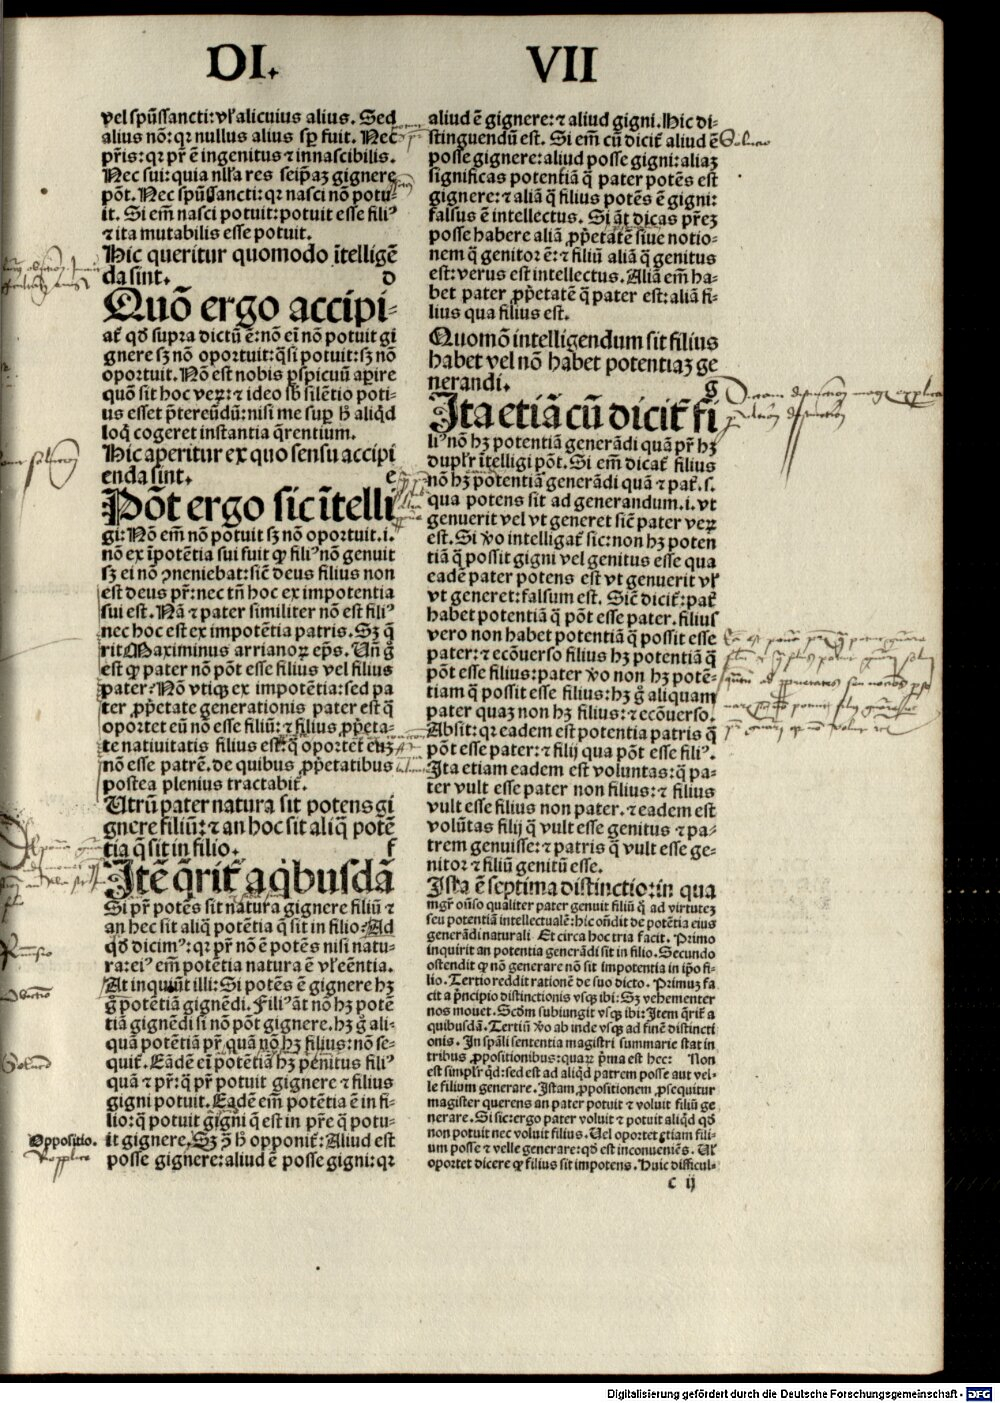 DI. VII
vel spūssancti: vl̓ alicuius alius. Sed
alius nō: qꝛ nullus alius sp̄ fuit. Nec
pr̄is: qꝛ pr̄ ē ingenitus ⁊ innascibilis.
Nec sui: quia nll̓a res seip̄aꝫ gignere
pōt. Nec spūssancti: qꝛ nasci nō potu-
it. Si em̄ nasci potuit: potuit esse filiꝰ
⁊ ita mutabilis esse potuit.
Hic queritur quomodo ītelligē
da sint. d
Quō ergo accipi-
at᷑ qd̓ supra dictū ē: nō ei nō potuit gi
gnere sꝫ nō oportuit: q̄si potuit: sꝫ nō
oportuit. Nō est nobis ꝑspicuū aꝑire
quō sit hoc verꝝ: ⁊ ideo sb̓ silētio poti-
us esset p̄tereūdū: nisi me suꝑ h̓ aliqd̓
loq̄ cogeret instantia q̄rentium.
Hic aperitur ex quo sensu accipi
enda sint. e
Pōt ergo sic ītelli
gi: Nō em̄ nō potuit sꝫ nō oportuit. i.
nō ex īpotētia sui fuit ꝙ filiꝰ nō genuit
sꝫ ei nō ꝯueniebat: sic̄ deus filius non
est deus pr̄: nec tn̄ hoc ex impotentia
sui est. Nā ⁊ pater similiter nō est filiꝰ
nec hoc est ex impotētia patris. Sꝫ q̄
rit Maximinus arrianoꝝ ep̄s. Un̄ g̊
est ꝙ pater nō pōt esse filius vel filius
pater? Nō vtiqꝫ ex impotētia: sed pa
ter ꝓpetate generationis pater est q̄
oportet eū nō esse filiū: ⁊ filius ꝓpeta-
te natiuitatis filius est: q̄ oportet eūꝫ
nō esse patrē. de quibus ꝓpetatibus
postea plenius tractabit᷑.
Utrū pater natura sit potens gi
gnere filiū: ⁊ an hoc sit aliq̄ potē
tia q̄ sit in filio. f
Itē q̄rit᷑ a qb̓usdā
Si pr̄ potēs sit natura gignere filiū ⁊
an hec sit aliq̄ potētia q̄ sit in filio. Ad
qd̓ dicimꝰ: qꝛ pr̄ nō ē potēs nisi natu-
ra: eiꝰ em̄ potētia natura ē vl̓ eēntia.
At inquiūt illi: Si potēs ē gignere hꝫ
g̊ potētiā gignēdi. Filiꝰ at̄ nō hꝫ potē
tiā gignēdi si nō pōt gignere. hꝫ g̊ ali-
quā potētiā pr̄ quā nō hꝫ filius: nō se-
quit᷑. Eādē ei potētiā hꝫ penitus filiꝰ
quā ⁊ pr̄: q̄ pr̄ potuit gignere ⁊ filius
gigni potuit. Eadē em̄ potētia ē in fi-
lio: q̄ potuit gigni q̄ est in pr̄e q̄ potu-
it gignere. Sꝫ ꝯ̄ h̓ opponit᷑: Aliud est
posse gignere: aliud ē posse gigni: qꝛ
Oppositio.
aliud ē gignere: ⁊ aliud gigni. Hic di-
stinguendū est. Si em̄ cū dicit᷑ aliud ē
posse gignere: aliud posse gigni: aliaꝫ
significas potentiā q̄ pater potēs est
gignere: ⁊ aliā q̄ filius potēs ē gigni:
falsus ē intellectus. Si at̄ dicas pr̄eꝫ
posse habere aliā ꝓpetatē siue notio-
nem q̄ genitor ē: ⁊ filiū aliā q̄ genitus
est: verus est intellectus. Aliā em̄ ha-
bet pater ꝓpetatē q̄ pater est: aliā fi-
lius qua filius est.
Quomō intelligendum sit filius
habet vel nō habet potentiaꝫ ge
nerandi. g
Ita etiā cū dicit᷑ fi
liꝰ nō hꝫ potentiā generādi quā pr̄ hꝫ
dupl̓r ītelligi pōt. Si em̄ dicat᷑ filius
nō hꝫ potentiā generādi quā ⁊ pat᷑. s.
qua potens sit ad generandum. i. vt
genuerit vel vt generet sic̄ pater veꝝ
est. Si vo intelligat᷑ sic: non hꝫ poten
tiā q̄ possit gigni vel genitus esse qua
eadē pater potens est vt genuerit vl̓
vt generet: falsum est. Sic̄ dicit᷑: pat᷑
habet potentiā q̄ pōt esse pater. filius
vero non habet potentiā q̄ possit esse
pater: ⁊ ecōuerso filius hꝫ potentiā q̄
pōt esse filius: pater vo non hꝫ potē-
tiam q̄ possit esse filius: hꝫ g̊ aliquam
pater quaꝫ non hꝫ filius: ⁊ ecōuerso.
Absit: qꝛ eadem est potentia patris q̄
pōt esse pater: ⁊ filij qua pōt esse filiꝰ.
Ita etiam eadem est voluntas: q̄ pa-
ter vult esse pater non filius: ⁊ filius
vult esse filius non pater. ⁊ eadem est
volūtas filij q̄ vult esse genitus ⁊ pa-
trem genuisse: ⁊ patris q̄ vult esse ge-
nitor ⁊ filiū genitū esse.
Ista ē septima distinctio: in qua
mgr̄ oñso qualiter pater genuit filiū q̄ ad virtuteꝫ
seu potentiā intellectualē: hic oñdit de potētia eius
generādi naturali Et circa hoc tria facit. Primo
inquirit an potentia generādi sit in filio. Secundo
ostendit ꝙ nō generare nō sit impotentia in ip̄o fi-
lio. Tertio reddit rationē de suo dicto. Primuꝫ fa
cit a p̄ncipio distinctionis vsqꝫ ibi: Sꝫ vehementer
nos mouet. Scd̓m subiungit vsqꝫ ibi: Item q̄rit᷑ a
quibusdā. Tertiū vo ab inde vsqꝫ ad finē distincti
onis. In spāli sententia magistri summarie stat in
tribus ꝓpositionibus: quaꝝ p̄ma est hec: Non
est simpl̓r qd̓: sed est ad aliqd̓ patrem posse aut vel-
le filium generare. Istam ꝓpositionem ꝓsequitur
magister querens an pater potuit ⁊ voluit filiū ge
nerare. Si sic: ergo pater voluit ⁊ potuit aliqd̓ qd̓
non potuit nec voluit filius. Uel oportet etiam fili-
um posse ⁊ velle generare: qd̓ est inconueniēs. Ul̓
oportet dicere ꝙ filius sit impotens. Huic difficul-
c ij
Digitalisierung gefördert durch die Deutsche Forschungsgemeinschaft - DFG